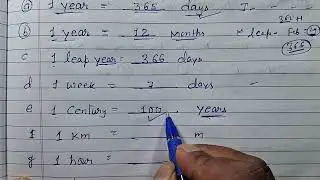 (a) 1 year = 365 days
(b) 1 year = 12 Months * leap - Feb -
366
c 1 leap year = 366 days
d 1 week = 7 days -
e 1 Century = 100 years
f 1 km = m
g 1 hour =